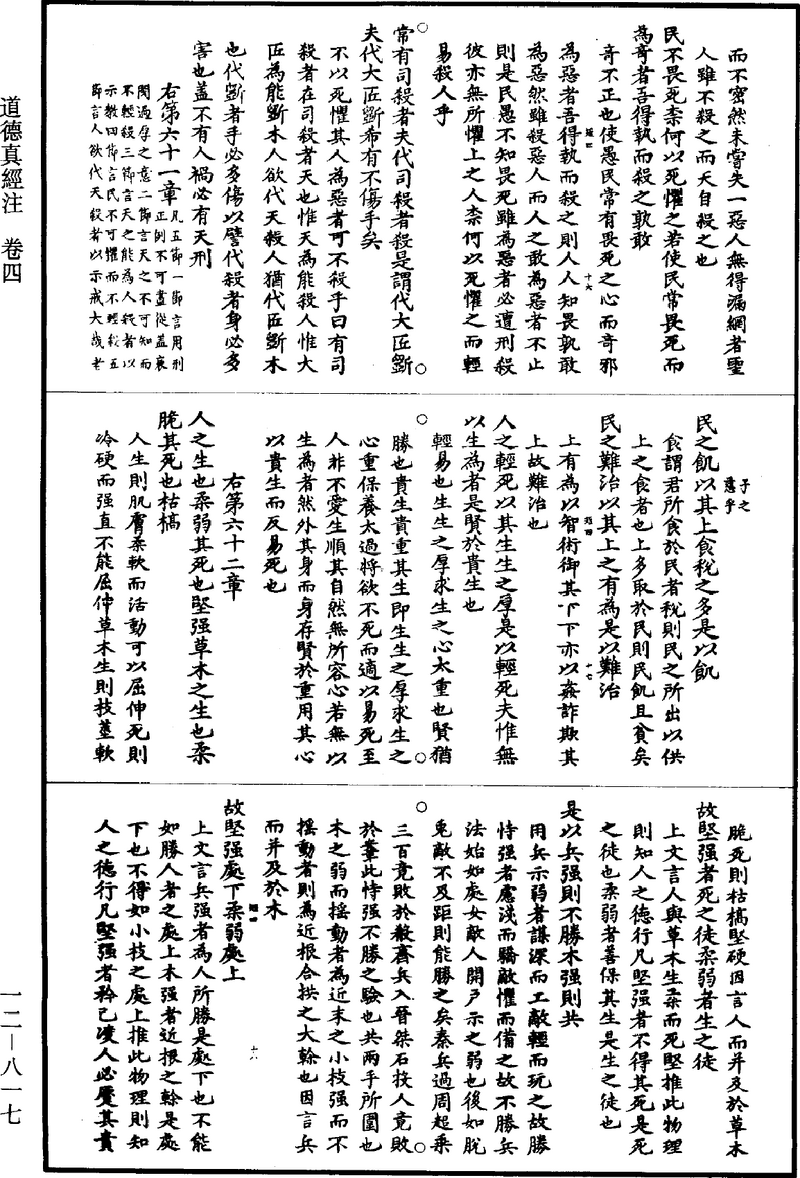 道德真經注 卷四
一二—八一七
而不密然未嘗失一惡人無得漏網者聖
人雖不殺之而天自殺之也
民不畏死柰何以死懼之若使民常畏死而
為奇者吾得執而殺之孰敢
奇不正也使愚民常有畏死之心而奇邪
為惡者吾得執而殺之則人人知畏孰敢
為惡然雖殺惡人而人之敢為惡者不止
則是民愚不知畏死雖為惡者必遭刑殺
彼亦無所懼上之人柰何以死懼之而輕
易殺人乎
常有司殺者夫代司殺者殺是謂代大匠斲
夫代大匠斲希有不傷手矣
不以死懼其人為惡者可不殺乎曰有司
殺者在司殺者天也惟天為能殺人惟大
匠為能斲木人欲代天殺人猶代匠斲木
也代斲者手必多傷以譬代殺者身必多
害也蓋不有人禍必有天刑
右第六十一章凡五節一節言用刑
正例不可盡從蓋衰
閔過厚之意二節言天之不可知而
不輕殺三節言天之能為人殺者以
示教四節言民不可懼而不輕殺五
節言人欲代天殺者以示戒大哉老
子之
慈乎
民之飢以其上食稅之多是以飢
食謂君所食於民者稅則民之所出以供
上之食者也上多取於民則民飢且貧矣
民之難治以其上之有為是以難治
上有為以智術御其下下亦以姦詐欺其
上故難治也
人之輕死以其生生之厚是以輕死夫惟無
以生為者是賢於貴生也
輕易也生生之厚求生之心太重也賢猶
勝也貴生貴重其生即生生之厚求生之
心重保養太過將欲不死而適以易死至
人非不愛生順其自然無所容心若無以
生為者然外其身而身存賢於重用其心
以貴生而反易死也
右第六十二章
人之生也柔弱其死也堅强草木之生也柔
脆其死也枯槁
人生則肌膚柔軟而活動可以屈伸死則
冷硬而强直不能屈伸草木生則枝莖軟
脆死則枯槁堅硬因言人而并及於草木
故堅强者死之徒柔弱者生之徒
上文言人與草木生柔而死堅推此物理
則知人之德行凡堅强者不得其死是死
之徒也柔弱者善保其生是生之徒也
是以兵强則不勝木强則共
用兵示弱者謀深而工敵輕而玩之故勝
恃强者慮淺而驕敵懼而備之故不勝兵
法始如處女敵人開戶示之弱也後如脫
兎敵不及距則能勝之矣秦兵過周超乘
三百竟敗於殽齊兵入晉桀石投人竟敗
於鞌此恃强不勝之驗也共兩手所圍也
木之弱而搖動者為近末之小枝强而不
搖動者則為近根合拱之大榦也因言兵
而并及於木
故堅强處下柔弱處上
上文言兵强者為人所勝是處下也不能
如勝人者之處上木强者近根之榦是處
下也不得如小枝之處上推此物理則知
人之德行凡堅强者矜己凌人必蹷其貴